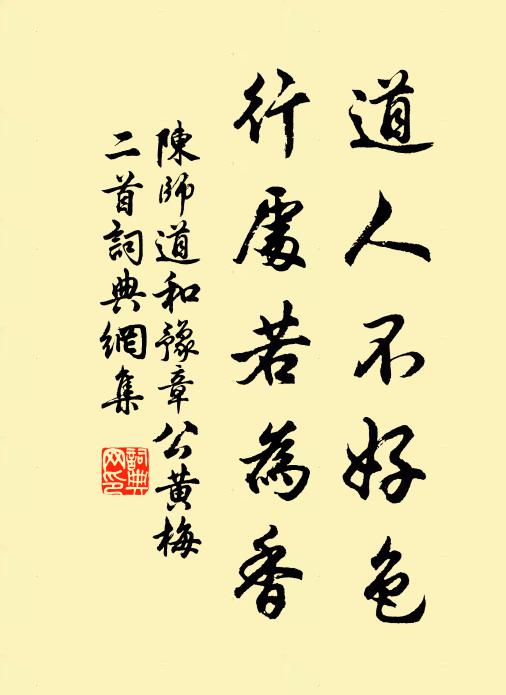 道人不好色
行處若為香
陳師道和豫章公黃梅
二首詞典網集
詞典
网印